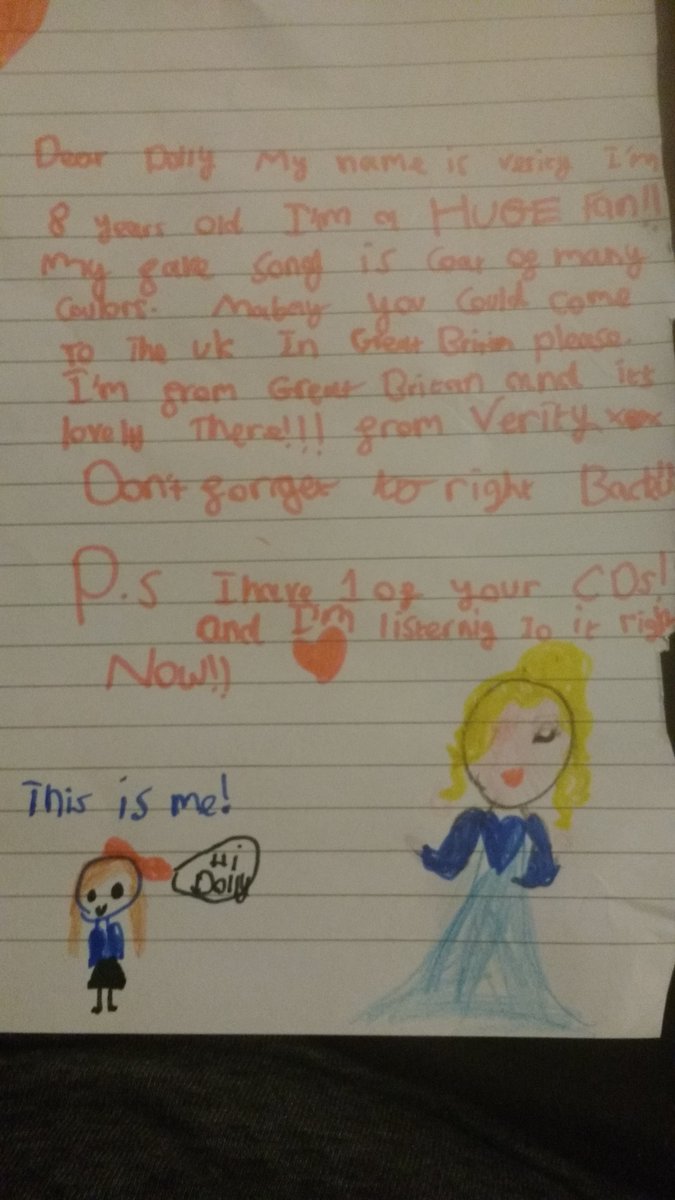 Dear Dolly My name is verity I'm
8 years old I'm a HUGE fan!!
My fave song is Coat of many
Coulors. Mabey you could come
To The UK In Great Britin please.
I'm from Great Britan and its
lovely There!!! from Verity xoxox
Don't forget to right Back!!
P.s I have 1 of your CDs!
and I'm listernig To it right
Now!!
This is me!
Hi
Dolly